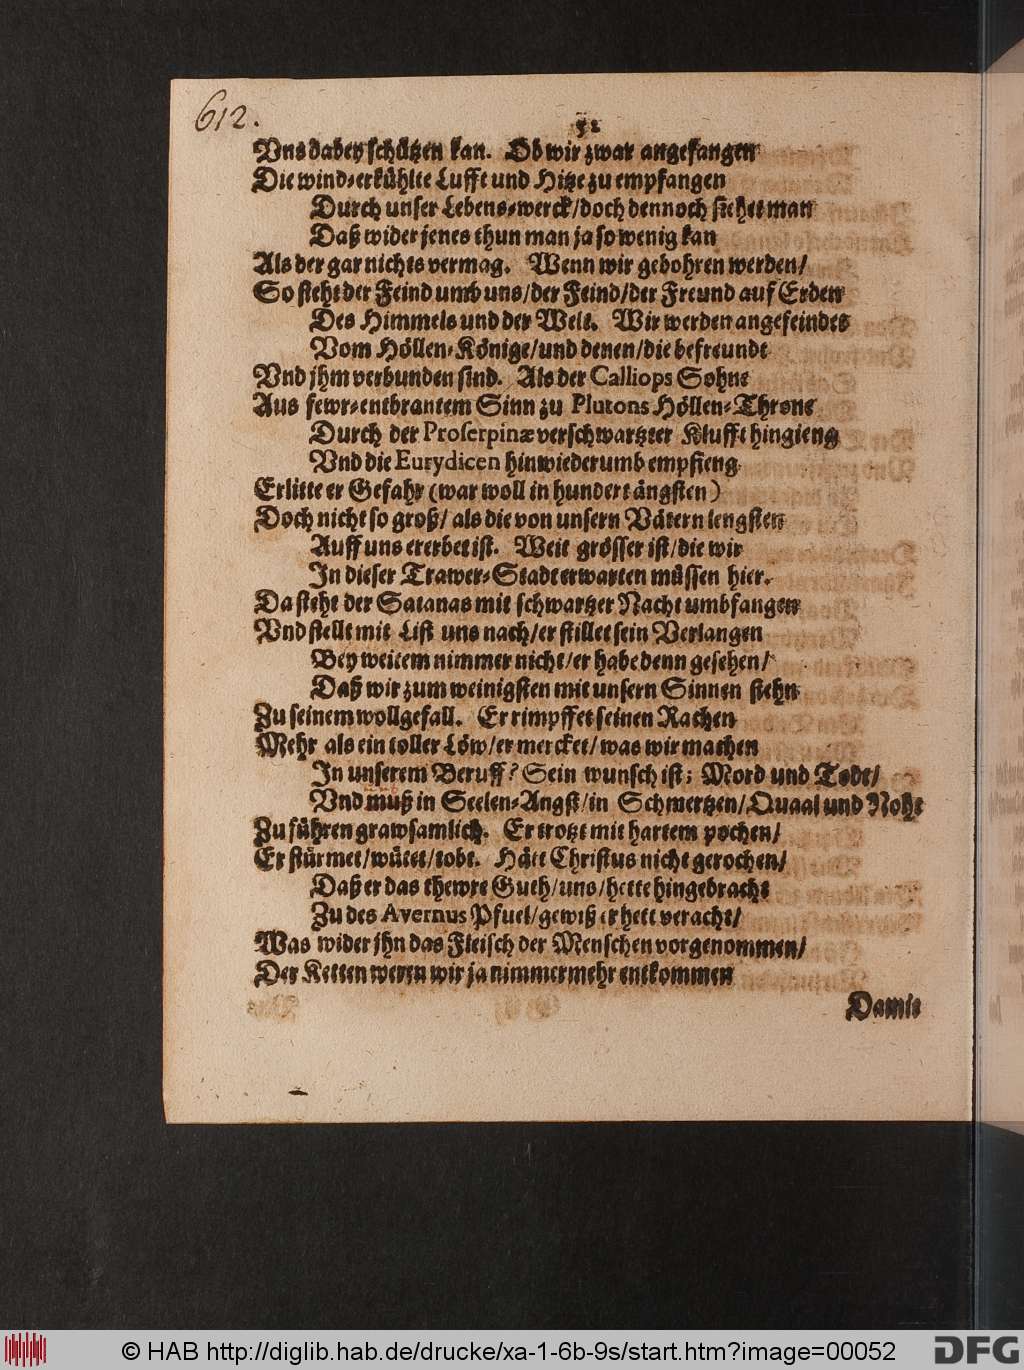 612.
52
Vns dabey schützen kan. Ob wir zwar angefangen
Die wind-erkühlte Lufft und Hitze zu empfangen
Durch unser Lebens-werck/doch dennoch siehet man
Daß wider jenes thun man ja so wenig kan
Als der gar nichts vermag. Wenn wir gebohren werden/
So steht der Feind umb uns/der Feind/der Freund auf Erden
Des Himmels und der Welt. Wir werden angefeindet
Vom Höllen-Könige/und denen/die befreundt
Vnd jhm verbunden sind. Als der Calliops Sohne
Aus fewr-entbrantem Sinn zu Plutons Höllen-Throne
Durch der Proserpinæ verschwartzter Klufft hingieng
Vnd die Eurydicen hinwiederumb empfieng
Erlitte er Gefahr (war woll in hundert ängsten)
Doch nicht so groß/ als die von unsern Vätern lengsten
Auff uns ererbet ist. Weit grösser ist/die wir
In dieser Trawer-Stadt erwarten müssen hier.
Da steht der Satanas mit schwartzer Nacht umbfangen
Vnd stellt mit List uns nach/er stillet sein Verlangen
Bey weitem nimmer nicht/er habe denn gesehen/
Daß wir zum weinigsten mit unsern Sinnen stehn
Zu seinem wollgefall. Er rimpffet seinen Rachen
Mehr als ein toller Löw/er mercket/was wir machen
In unserem Beruff? Sein wunsch ist; Mord und Todt/
Vnd muß in Seelen-Angst/in Schmertzen/Quaal und Noht
Zu führen grawsamlich. Er trotzt mit hartem pochen/
Er stürmet/wütet/tobt. Hätt Christus nicht gerochen/
Daß er das thewre Guth/uns/hette hingebracht
Zu des Avernus Pfuel/gewiß er hett veracht/
Was wider jhn das Fleisch der Menschen vorgenommen/
Der Ketten weren wir ja nimmermehr entkommen
Damit
© HAB http://diglib.hab.de/drucke/xa-1-6b-9s/start.htm?image=00052
DFG